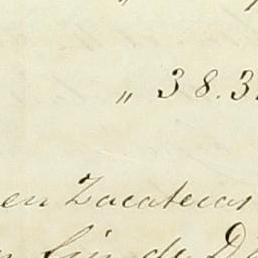 " 38.3
en Zacatecas
fin de D